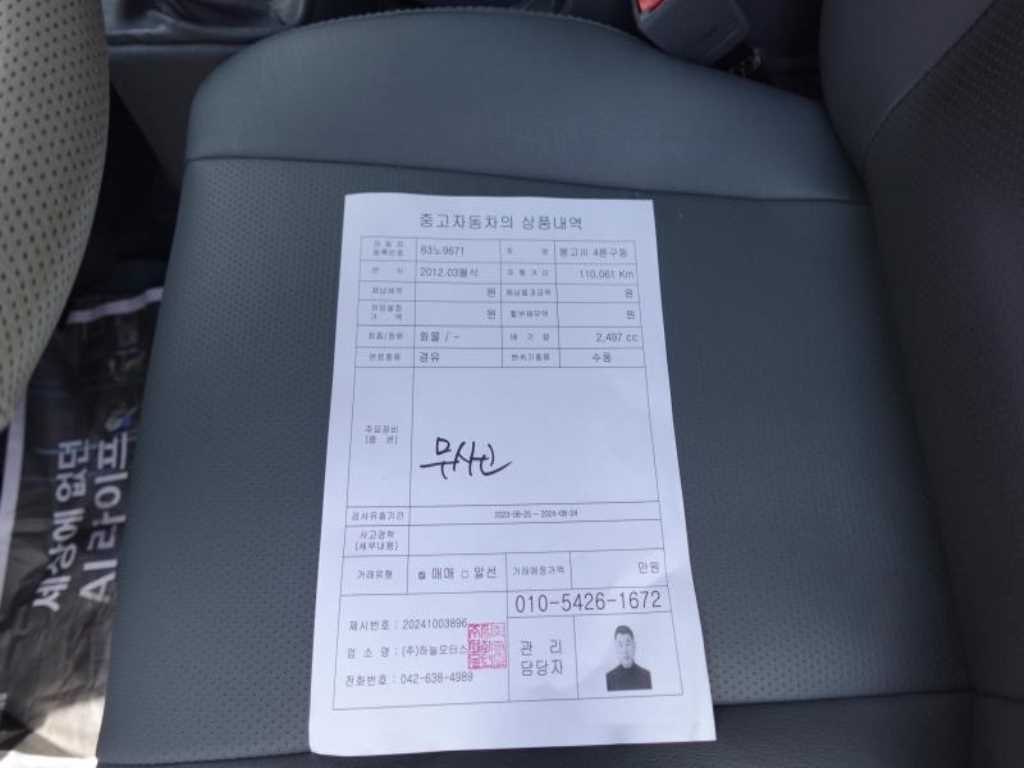 중고자동차의 상품내역
자동차등록번호 83노9671 차 명 봉고Ⅲ 4륜구동
연 식 2012.03월식 주행거리 110,061 Km
체납세액 원 체납범과금액 원
저당설정가 액 원 할부채무액 원
차종/화물 화물 / - 배 기 량 2,497 cc
연료종류 경유 변속기종류 수동
주요장비
(옵 션) 무사고
검사유효기간 2023-08-25 ~ 2024-08-24
사고경력
(세부내용)
거래유형 매매 알선 거래예정가액 만원
010-5426-1672
제시번호 : 20241003896
업 소 명 : (주)하늘모터스
전화번호 : 042-638-4989
관 리
담당자
세상에 없던
AI 라이프